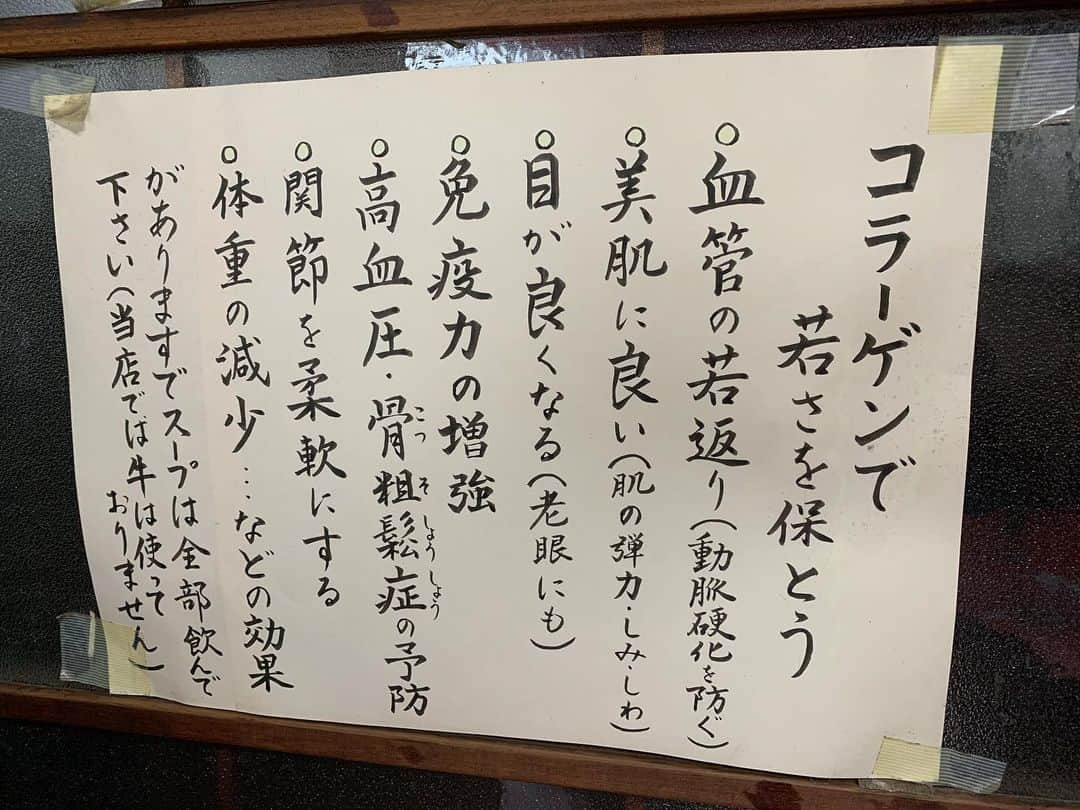 コラーゲンで
若さを保とう
○血管の若返り(動脈硬化を防ぐ)
○美肌に良い(肌の弾力・しみ・しわ)
○目が良くなる(老眼にも)
○免疫力の増強
○高血圧・骨粗鬆症の予防
こつそしょうしょう
○関節を柔軟にする
○体重の減少…などの効果
がありますでスープは全部飲んで
下さい(当店では牛は使って
おりません)